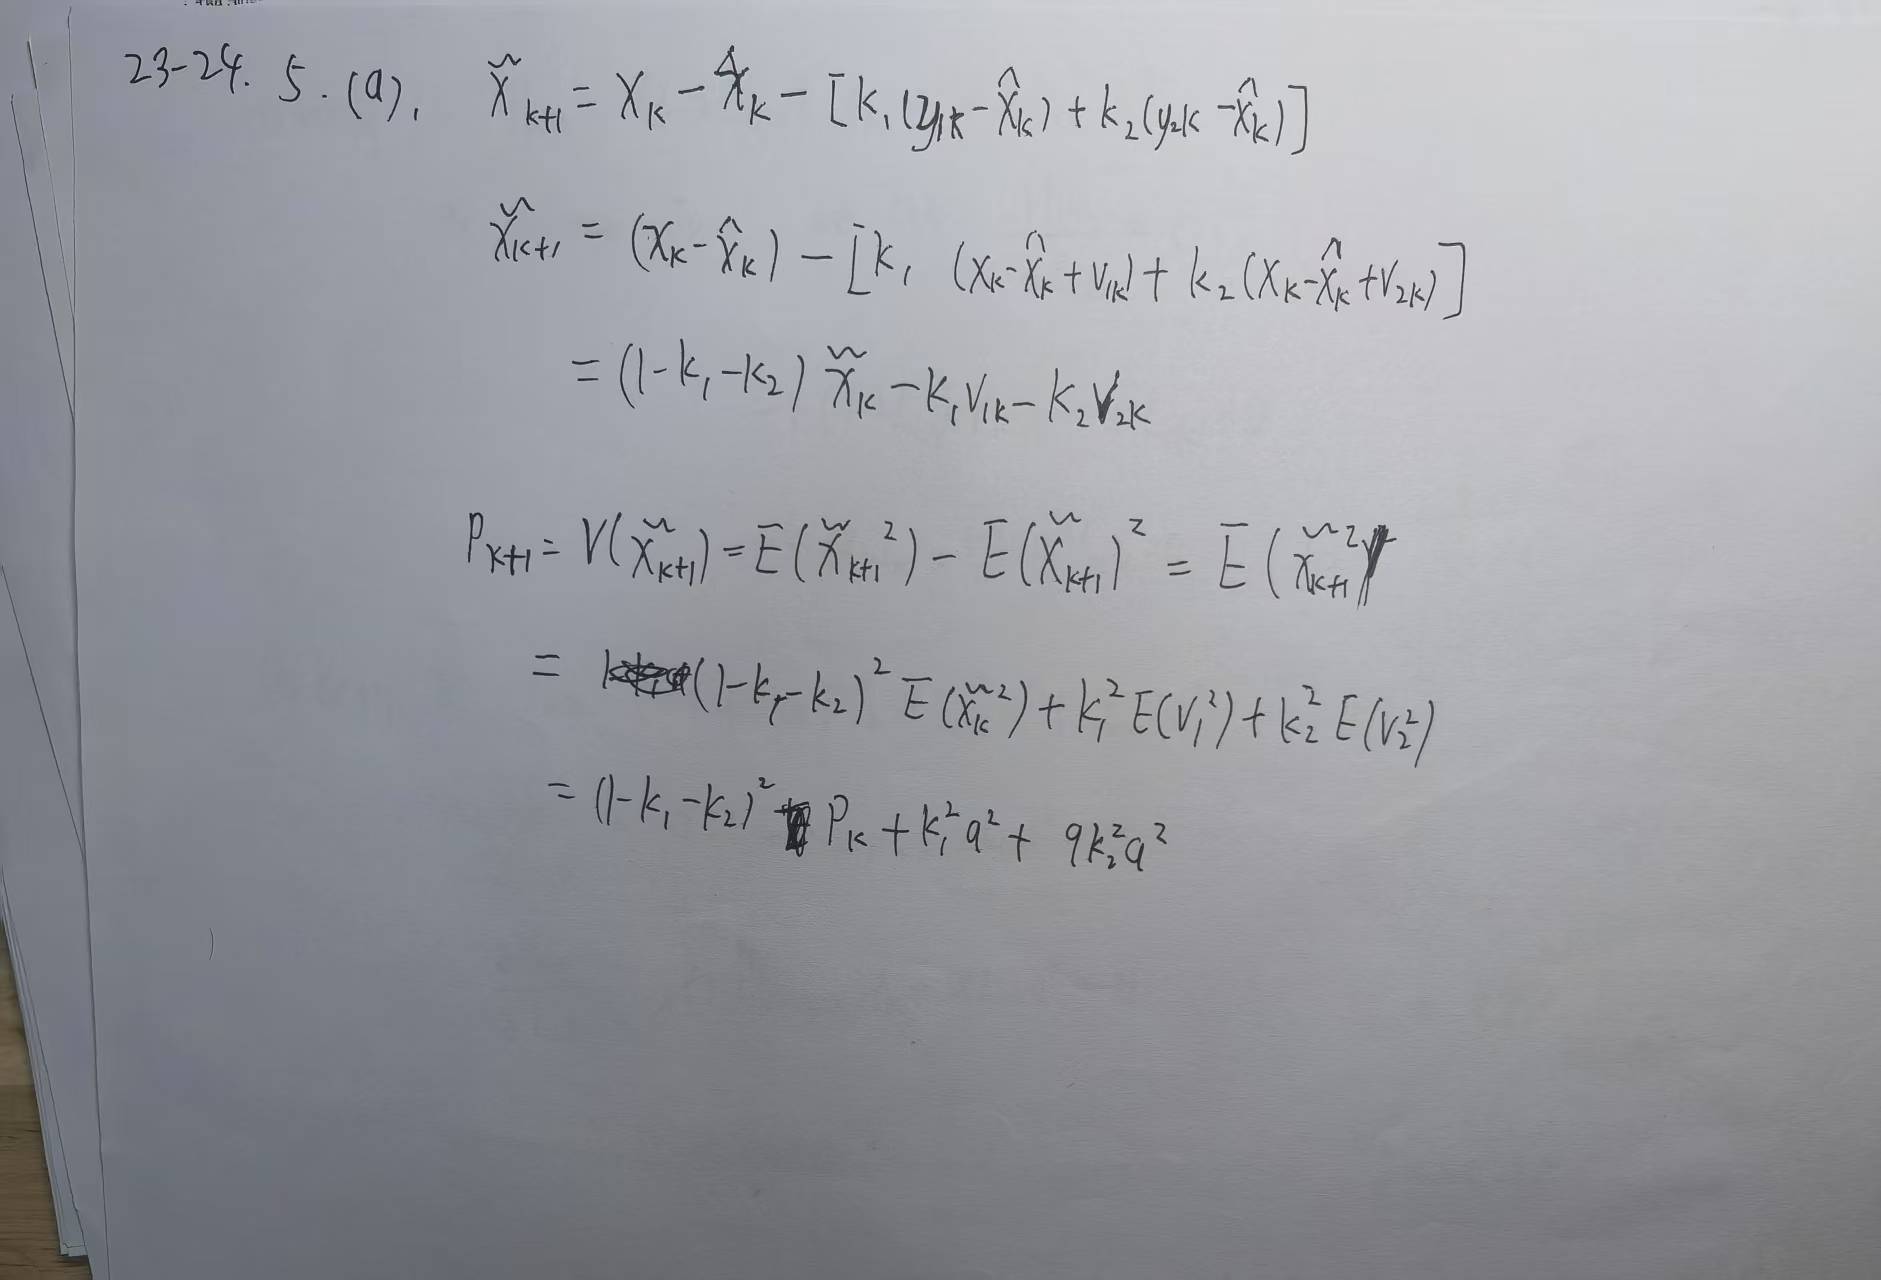 23-24. 5. (a). x̃ₖ₊₁ = xₖ - x̂ₖ - [k₁(y₁ₖ - x̂ₖ) + k₂(y₂ₖ - x̂ₖ)]
x̃ₖ₊₁ = (xₖ - x̂ₖ) - [k₁ (xₖ - x̂ₖ + v₁ₖ) + k₂(xₖ - x̂ₖ + v₂ₖ)]
= (1 - k₁ - k₂) x̃ₖ - k₁v₁ₖ - k₂v₂ₖ
Pₖ₊₁ = V(x̃ₖ₊₁) = E(x̃ₖ₊₁²) - E(x̃ₖ₊₁)² = E(x̃ₖ₊₁²)
= (1 - k₁ - k₂)² E(x̃ₖ²) + k₁² E(v₁²) + k₂² E(v₂²)
= (1 - k₁ - k₂)² Pₖ + k₁²a² + 9k₂²a²